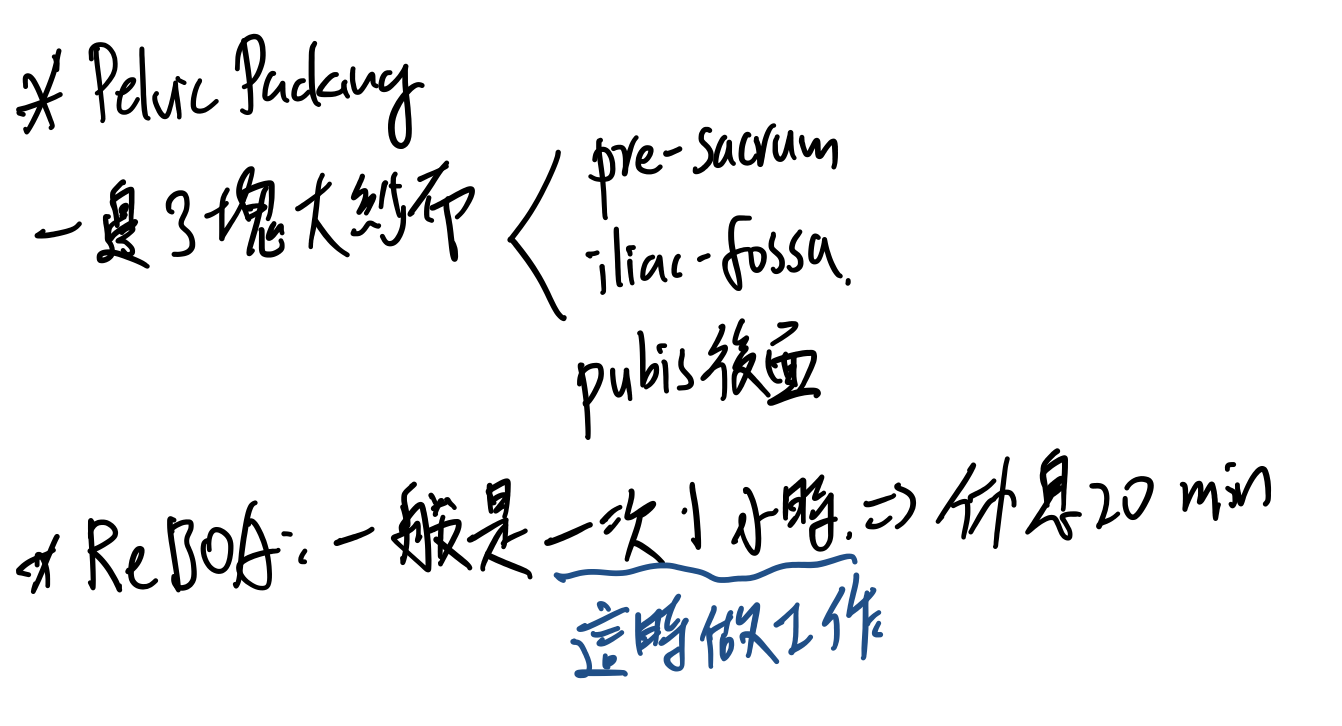 * Pelvic Packing
一邊3塊大紗布
pre-sacrum
iliac-fossa.
pubis後面
* ReBOA: 一般是一次1小時. => 休息20 min
這時做工作